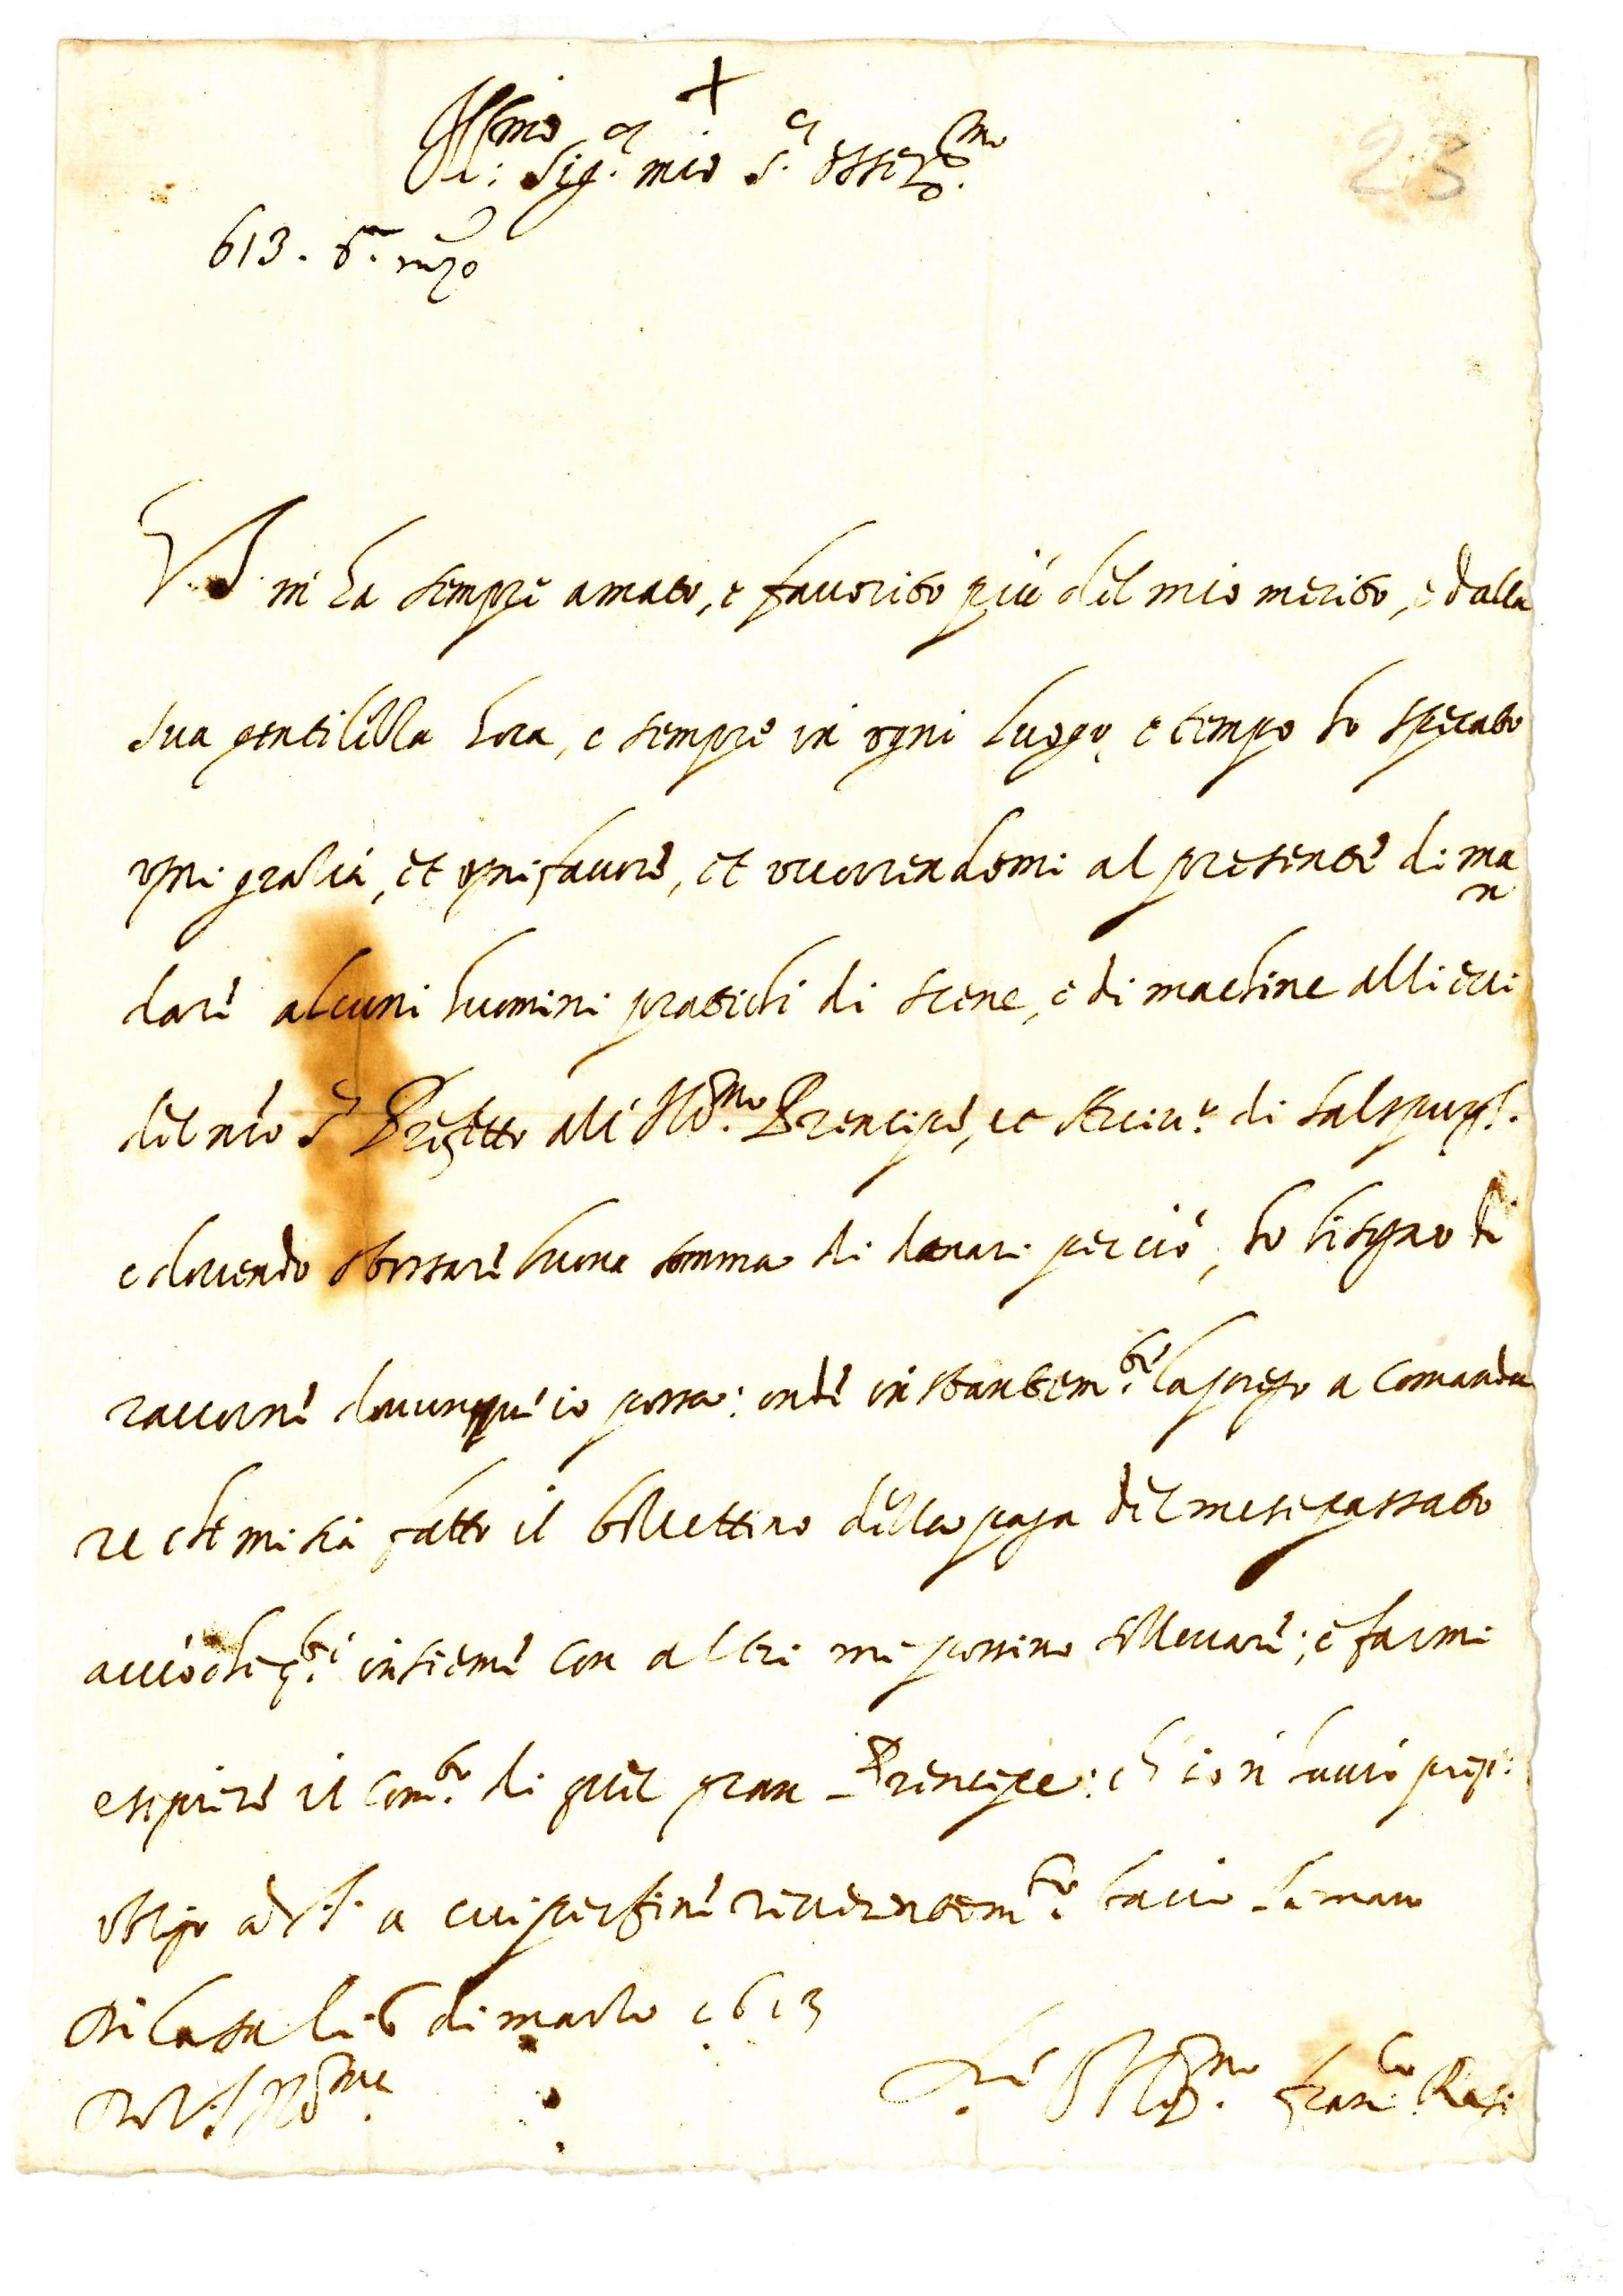 +
Ill.mo Sig.r mio S.r osser.mo
23
613. 6. mzo
V.S. m'ha sempre amato, e favorito più del mio merito, e dalla
sua gentilezza hora, e sempre in ogni luogo, e tempo ho sperato
ogni gratia, et ogni favore, et occorrendomi al presente di man
dare alcuni huomini pratichi di scene, e di machine allievi
del mio S.r Prefetto all' Ill.mo Prencipe, et Arciv.o di Salspurgh.
e dovendo sborsare buona somma di danari perciò, ho bisogno di
raccorne dovunque io possa: onde instantem.te la prego a comanda
re che mi sia fatto il bollettino della paga del mese passato
acciò che q.ti insieme con altri mi possino sollevare; e farmi
eseguire il com.to di quel gran Prencipe: ch' io n' havrò
obligo a V.S. a cui per fine reverentem.te bacio la mano
Di Casa li 6 di marzo 1613
Di V.S. Ill.ma
S.re Oblig.mo Fran.co Rasi